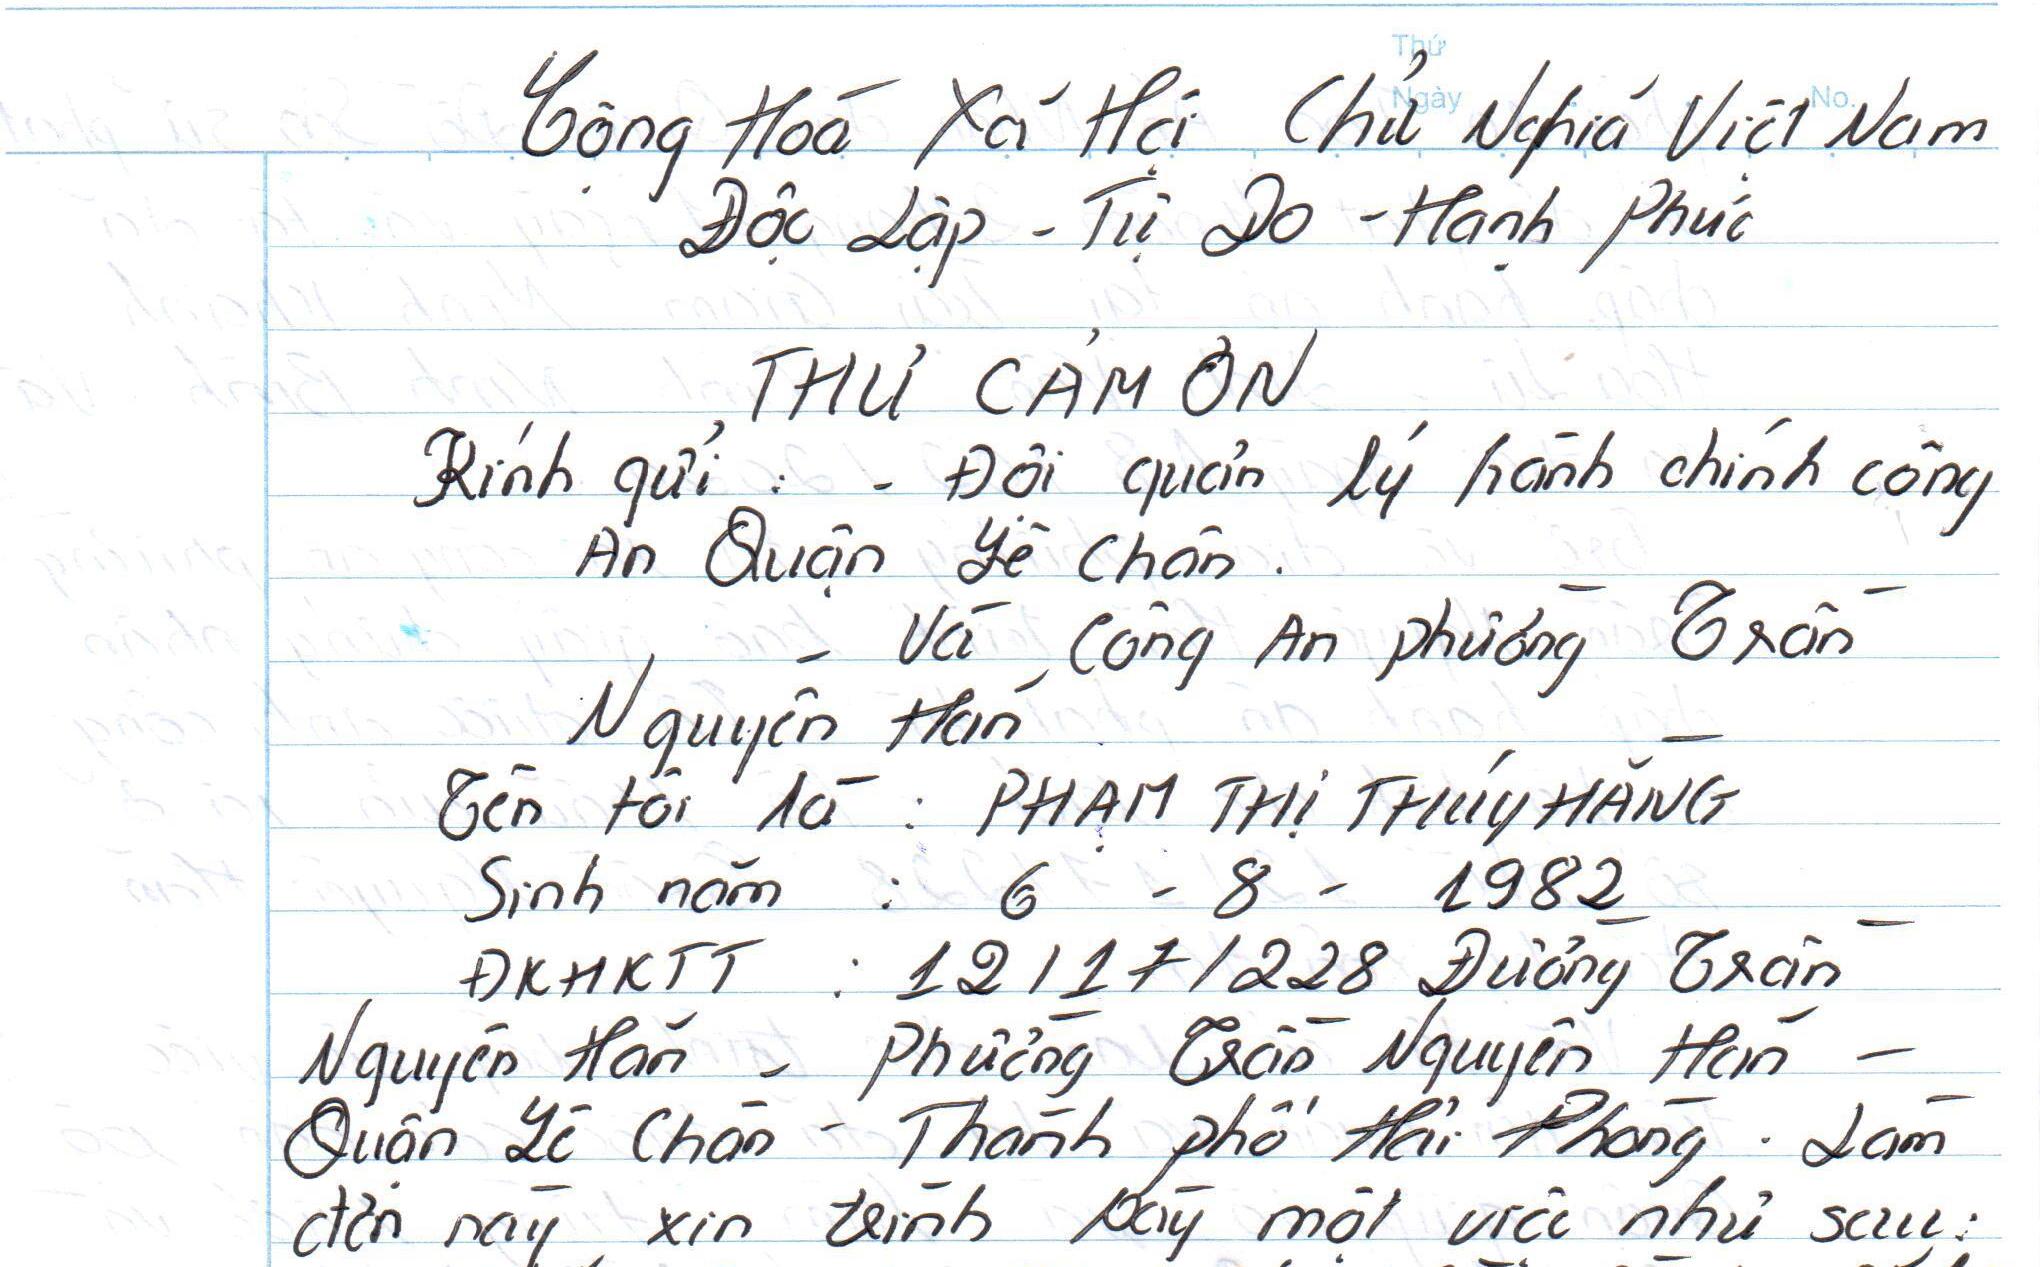 Thứ
Ngày
No.
Cộng Hoà Xã Hội Chủ Nghĩa Việt Nam
Độc Lập - Tự Do - Hạnh Phúc
THƯ CẢM ƠN
Kính gửi : - Đội quản lý hành chính công
An Quận Lê Chân.
- Và Công An phường Trần
Nguyên Hãn
Tên tôi là : PHẠM THỊ THÚY HẰNG
Sinh năm : 6 - 8 - 1982
ĐKHKTT : 12/17/228 Đường Trần
Nguyên Hãn - Phường Trần Nguyên Hãn -
Quận Lê Chân - Thành phố Hải Phòng. Làm
đơn này xin trình bày một việc như sau: